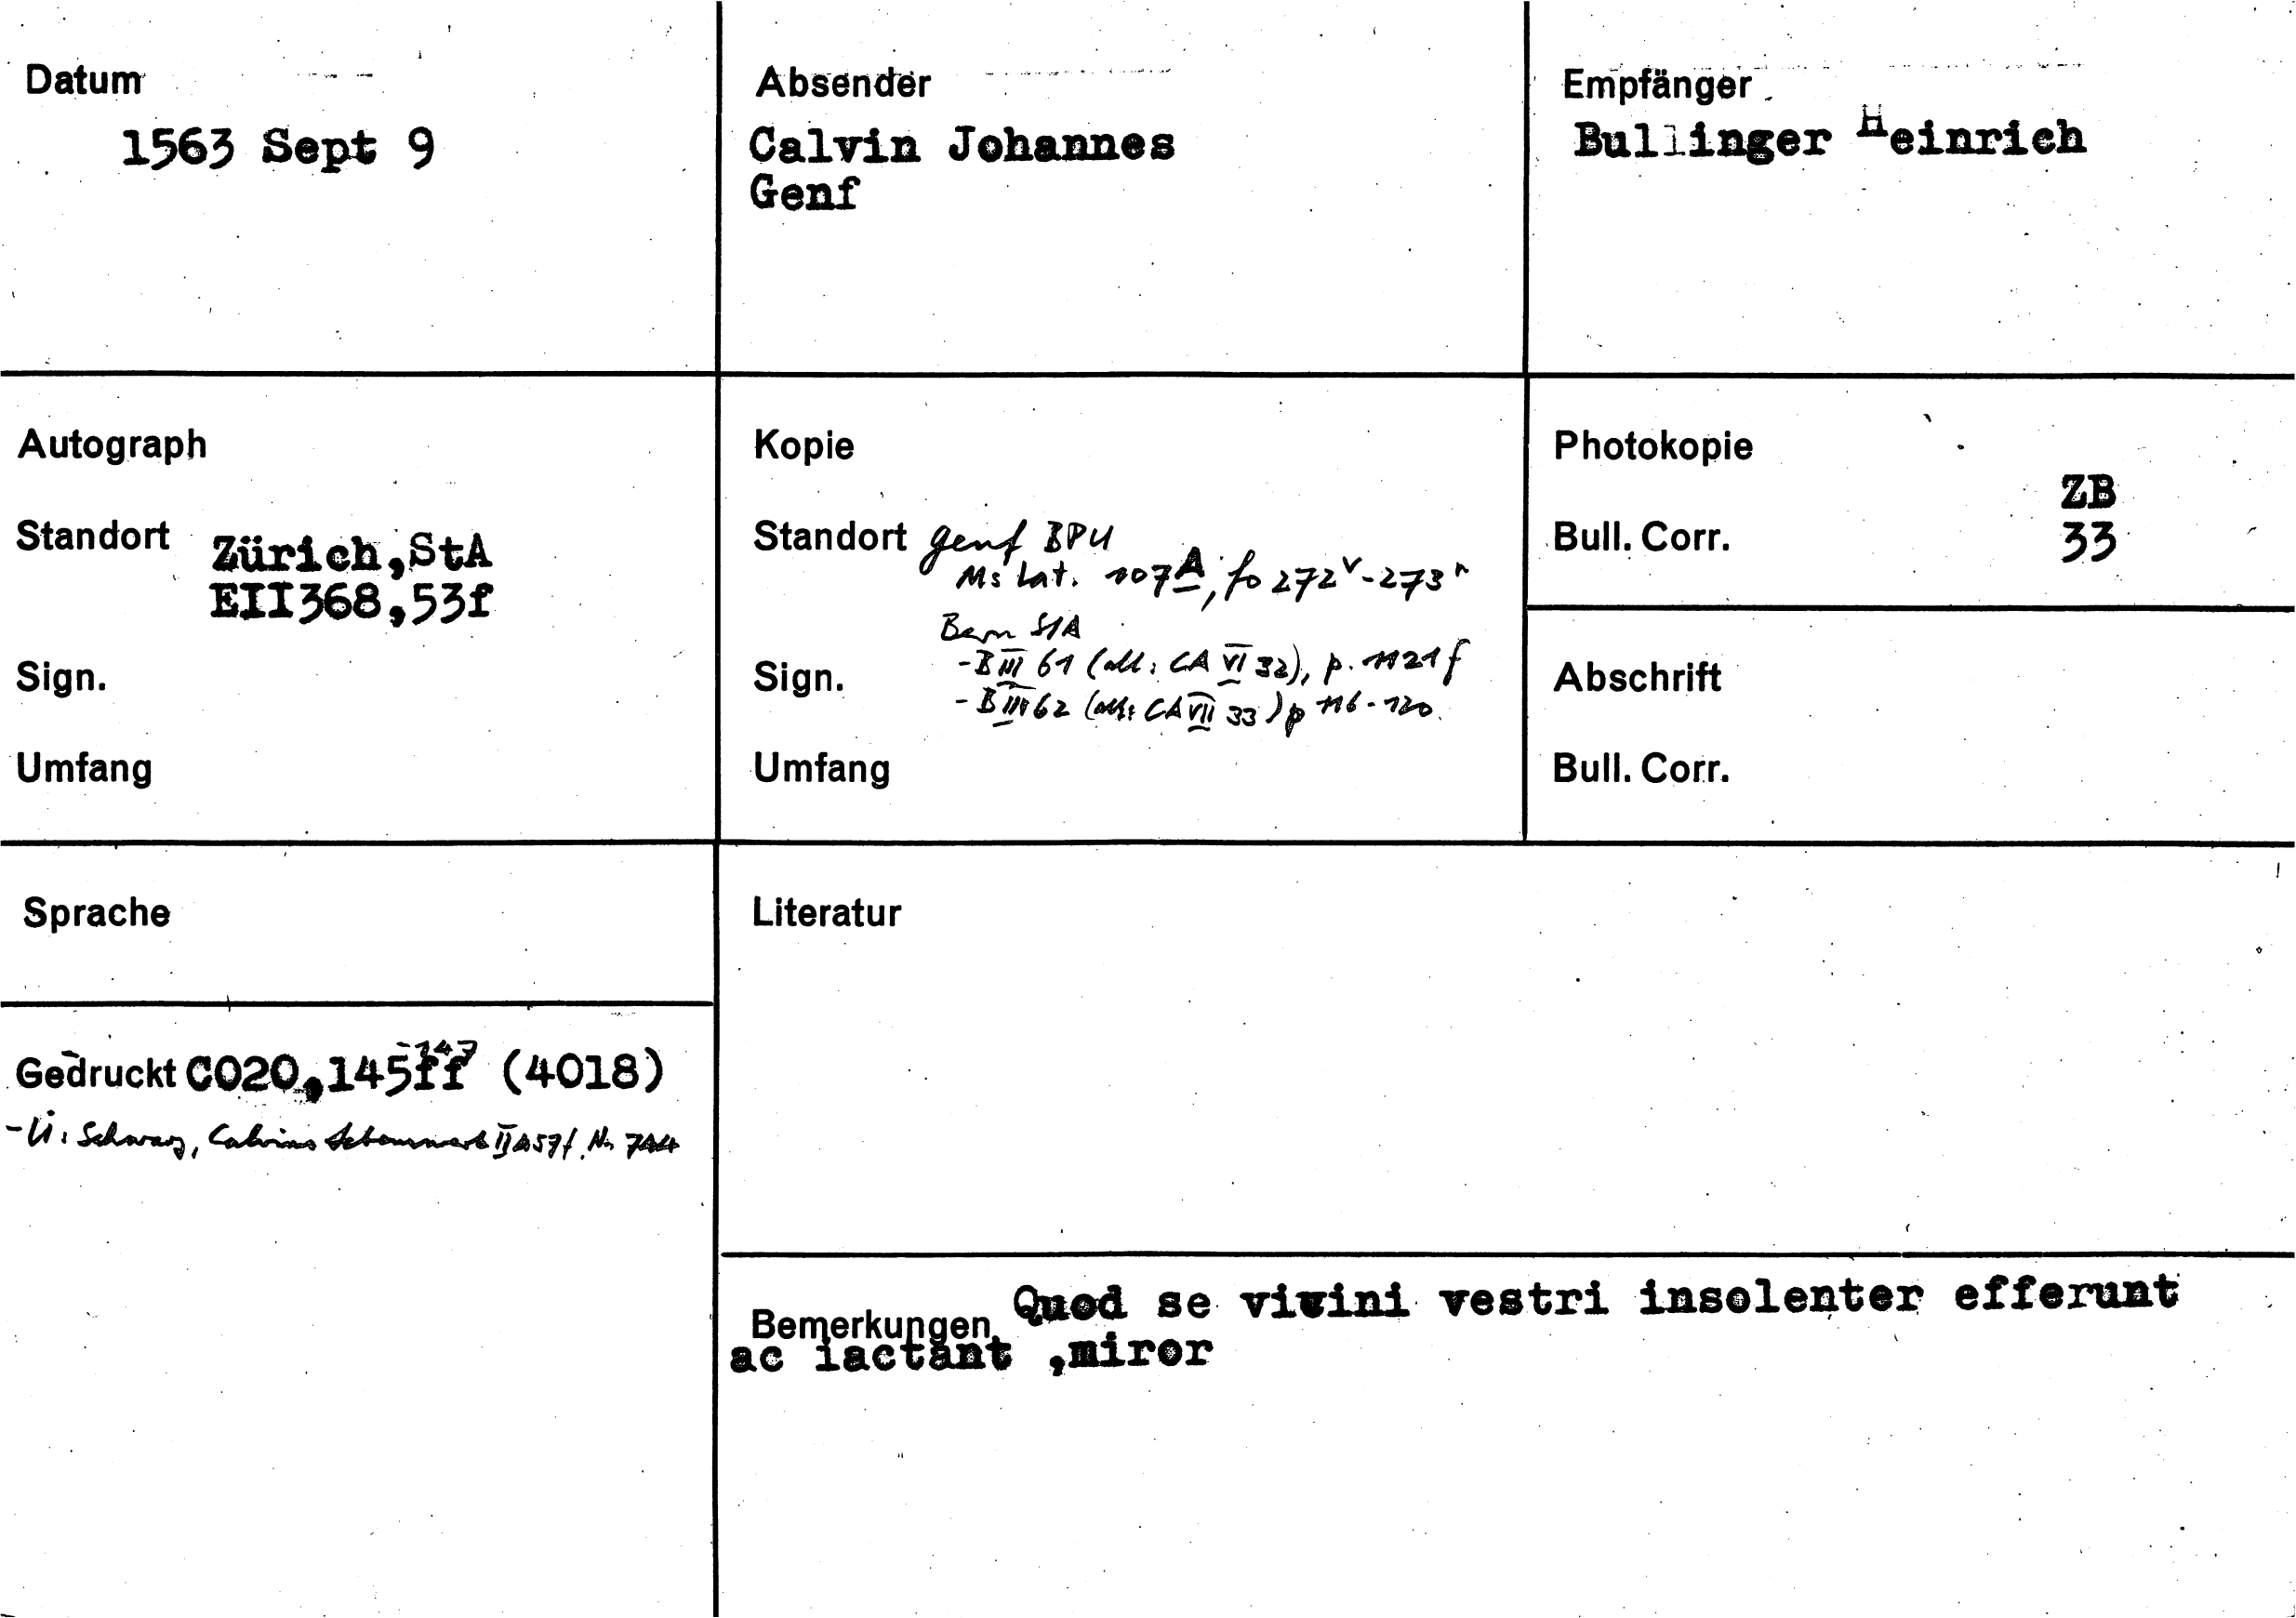 Datum
1563 Sept 9
Absender
Calvin Johannes
Genf
Empfänger
Bullinger Heinrich
Autograph
Standort Zürich,StA
EII368,53f
Sign.
Umfang
Kopie
Standort Genf BPU
Ms Lat. 107A, fo 272v-273r
Bern StA
- B III 61 (alt: CA VI 32), p. 1121f
Sign.
- B III 62 (alt: CA VII 33) p 116-120.
Umfang
Photokopie
ZB
Bull. Corr. 33
Abschrift
Bull. Corr.
Sprache
Gedruckt CO20,145ff -147 (4018)
- Ü: Schwarz, Calvins Lebenswerk II
Literatur
Bemerkungen Quod se vicini vestri insolenter efferunt
ac iactant ,miror